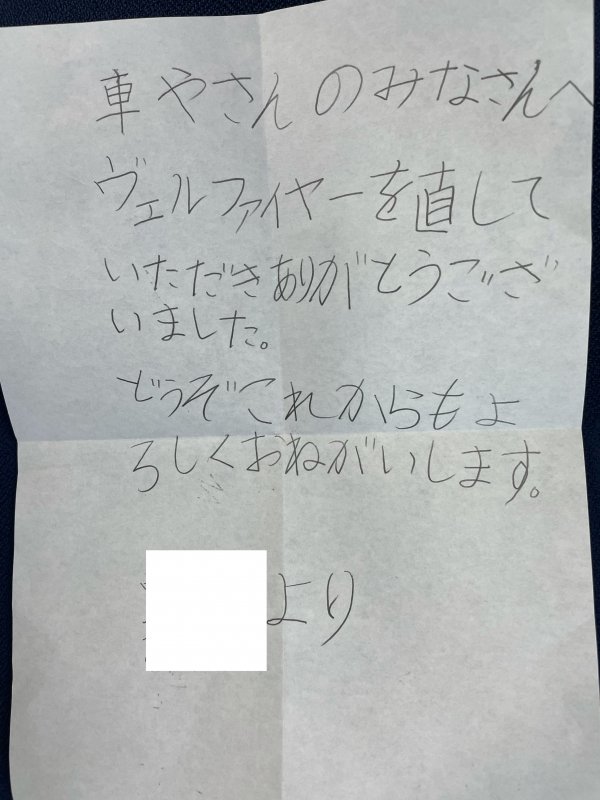 車やさんのみなさんへ
ヴェルファイヤーを直して
いただきありがとうござ
いました。
どうぞこれからもよ
ろしくおねがいします。
より